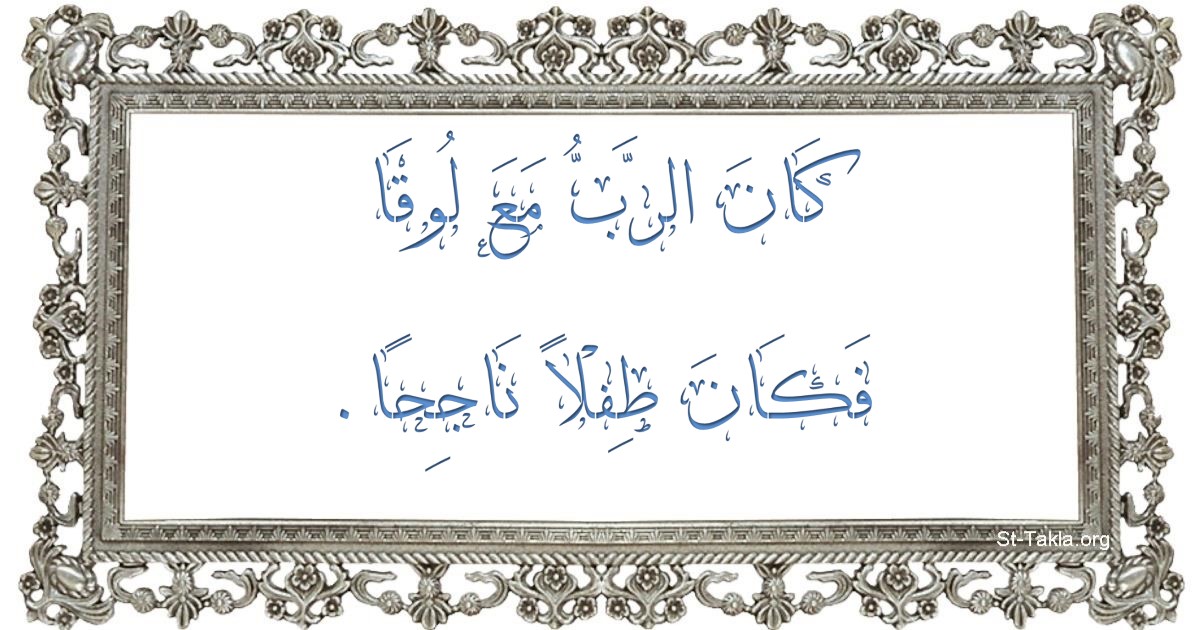 كَانَ الرَّبُّ مَعَ لُوقَا
فَكَانَ طِفْلاً نَاجِحًا .
St-Takla.org